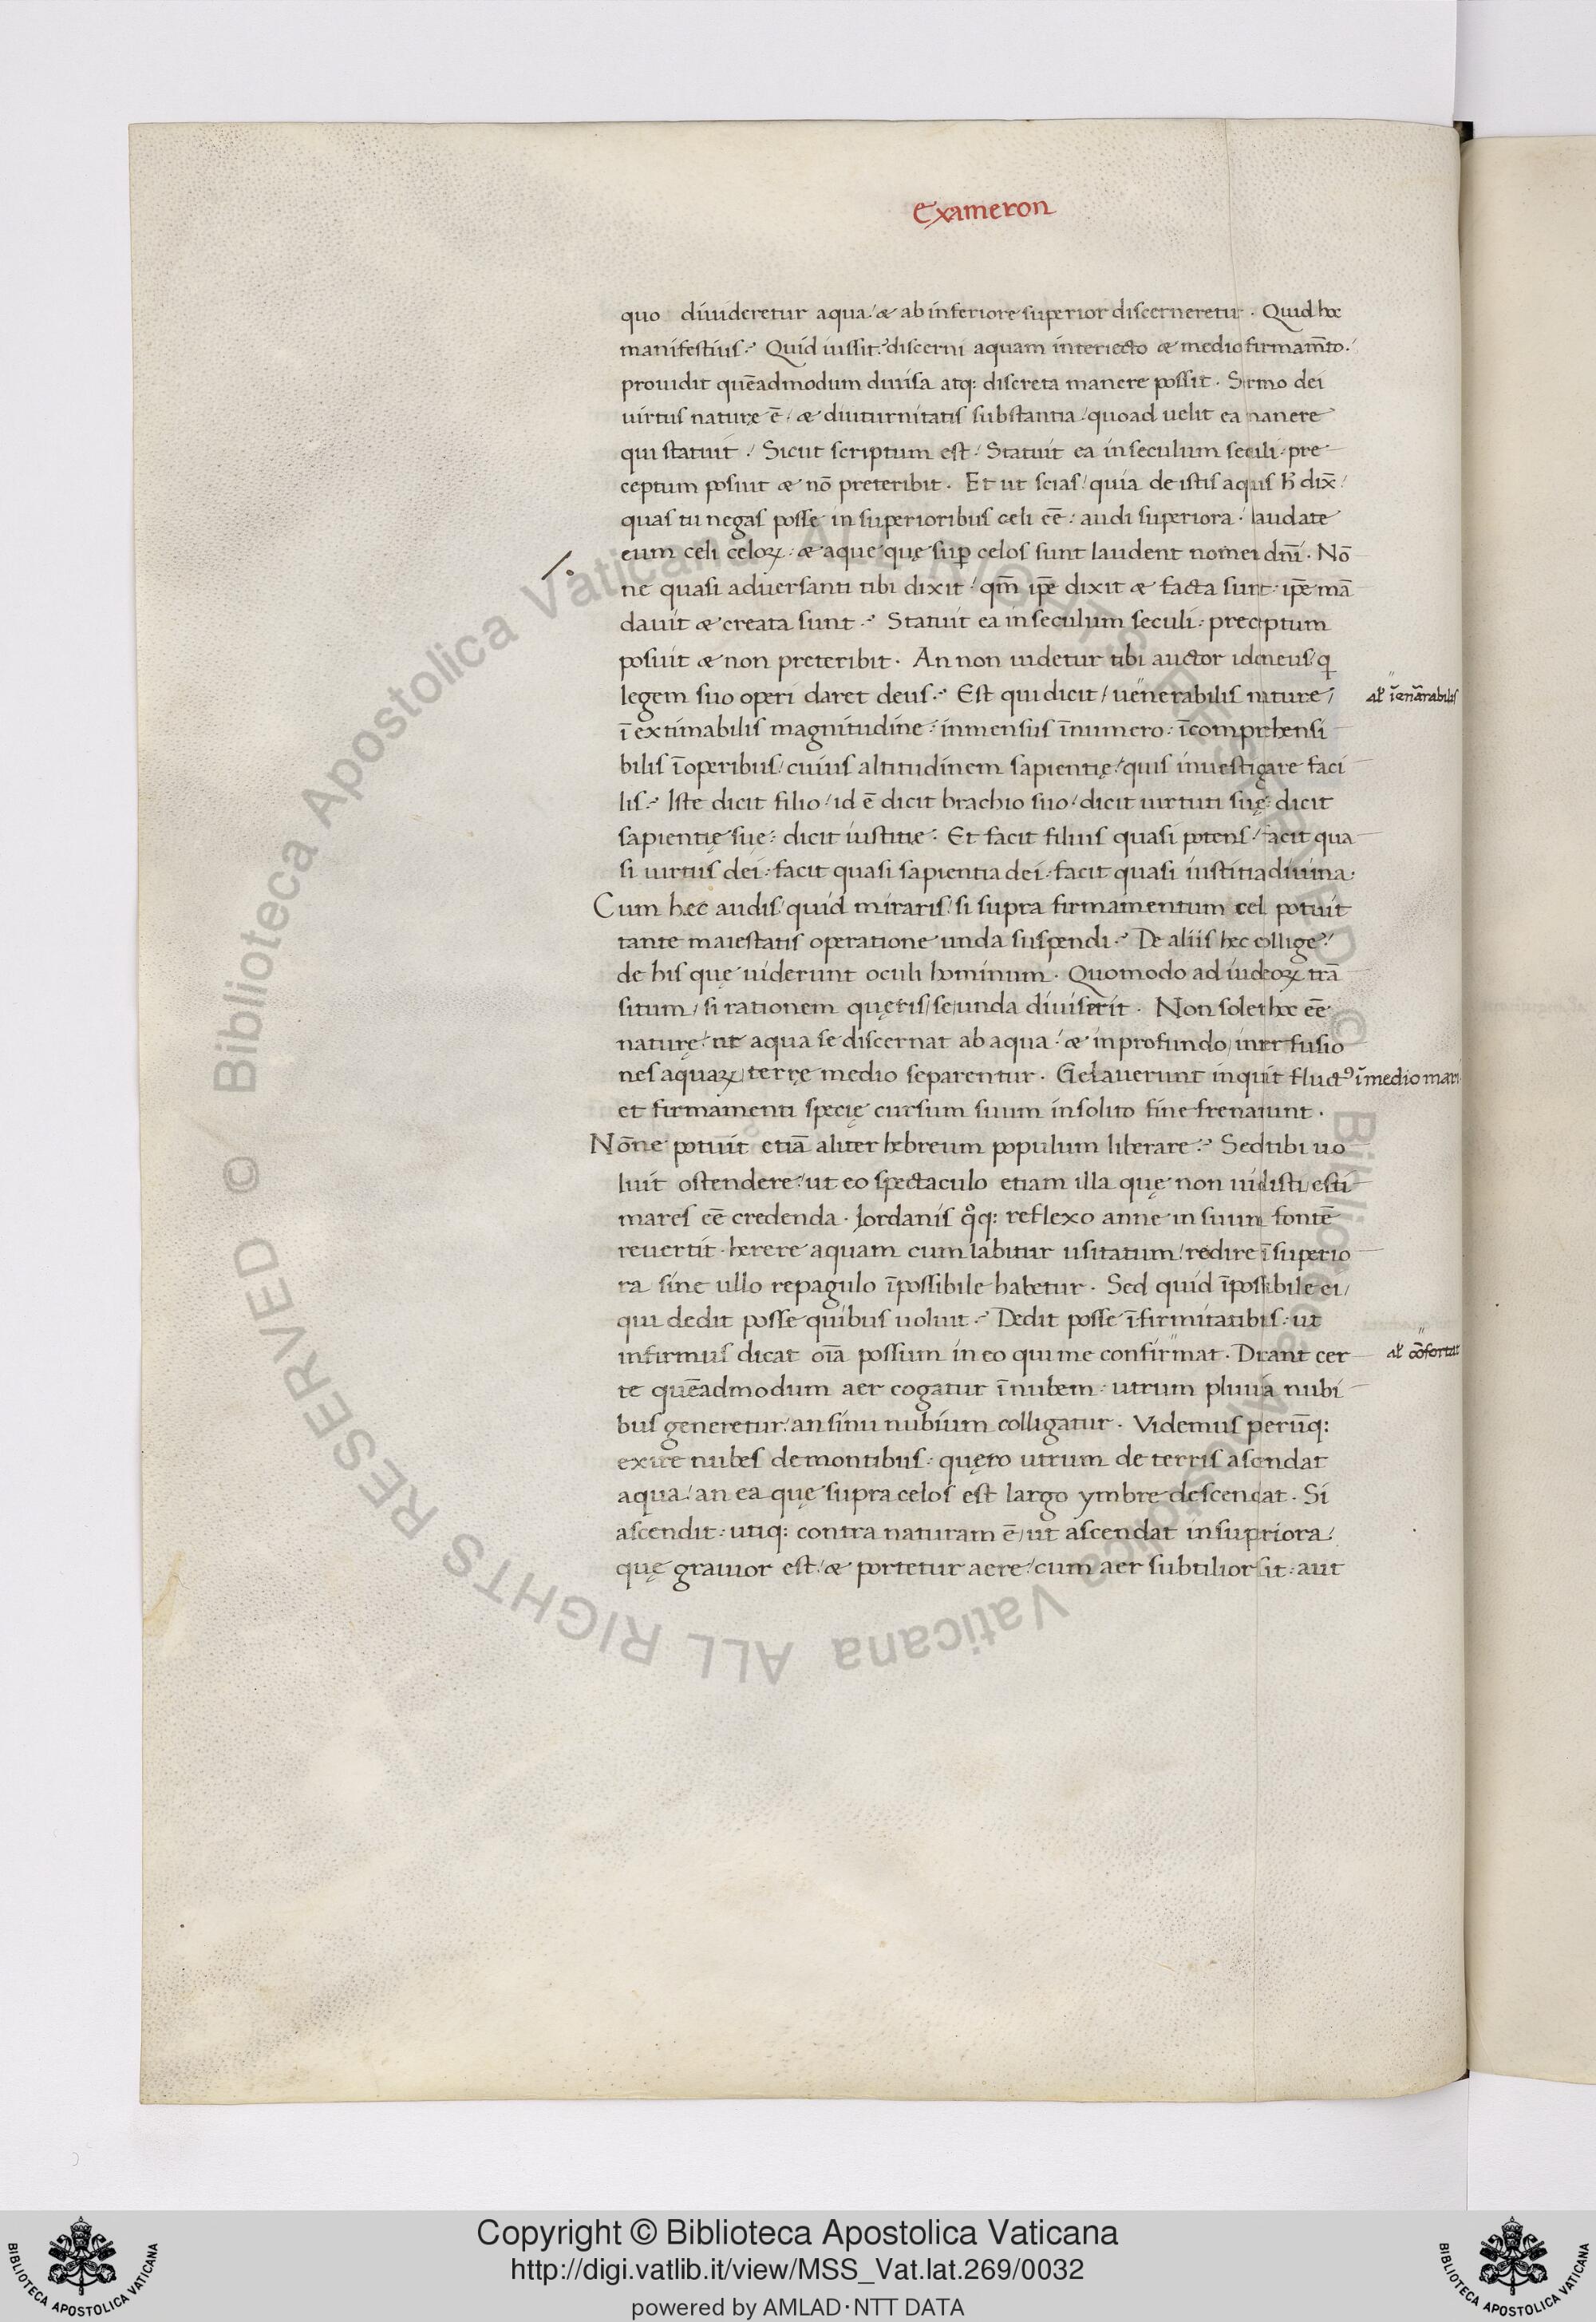 Exameron
quo diuideretur aqua / & ab inferiore superior discerneretur . Quid hoc
manifestius .? Quid iussit .? discerni aquam interiecto & medio firmam̅to . /
prouidit que̅admodum diuisa atq: discreta manere possit . Sermo dei
uirtus naturę e̅ / & diuturnitatis substantia / quoad uelit ea manere
qui statuit . / Sicut scriptum est / Statuit ea in seculum seculi : pre
ceptum posuit & no̅ preteribit . Et ut scias / quia de istis aquis h̅ dix̅ /
quas tu negas posse in superioribus celi ee̅ : audi superiora . laudate
eum celi celoꝝ : & aque quę sup̱ celos sunt laudent nomen dn̅i . No̅
ne quasi aduersanti tibi dixit / qm̅ ip̅e dixit & facta sunt : ip̅e ma̅
dauit & creata sunt .? Statuit ea in seculum seculi : preceptum
posuit & non preteribit . An non uidetur tibi auctor idoneus / q
legem suo operi daret deus .? Est qui dicit / uenerabilis nature /
al' i̅ena̅rrabilis
i̅extimabilis magnitudine : inmensus i̅numero : i̅comprehensi
bilis i̅operibus / cuius altitudinem sapientię / quis inuestigare faci
lis .? Iste dicit filio / id e̅ dicit brachio suo / dicit uirtuti suę : dicit
sapientię suę : dicit iustitie . Et facit filius quasi potens / facit qua
si uirtus dei : facit quasi sapientia dei : facit quasi iustitia diuina .
Cum hec audis / quid miraris / si supra firmamentum celi potuit
tante maiestatis operatione unda suspendi .? De aliis hec collige /
de his quę uiderunt oculi hominum . Quomodo ad iudeoꝝ tra̅
situm / si rationem quęris / se unda diuiserit . Non solet hoc ee̅
naturę / ut aqua se discernat ab aqua / & in profundo interfusio
nes aquaꝝ terrę medio separentur . Gelauerunt inquit fluctꝰ i̅medio mari
et firmamenti specię cursum suum insolito fine frenarunt .
No̅ne potuit etia̅ aliter hebreum populum liberare .? Sed tibi uo
luit ostendere / ut eo spectaculo etiam illa quę non uidisti / esti
mares ee̅ credenda . Iordanis qͦq: reflexo amne in suum fonte̅
reuertit . herere aquam cum labitur usitatum / redire i̅superio
ra sine ullo repagulo i̅possibile habetur . Sed quid i̅possibile ei /
qui dedit posse quibus uoluit .? Dedit posse i̅firmitatibus : ut
infirmus dicat oi̅a possum in eo qui me confirmat . Dicant cer
al' co̅fortat
te que̅admodum aer cogatur i̅nubem : utrum pluuia nubi
bus generetur / an sinu nubium colligatur . Videmus peru̅q:
exire nubes de montibus : quęro utrum de terris ascendat
aqua / an ea quę supra celos est largo ymbre descendat . Si
ascendit : utiq: contra naturam e̅ / ut ascendat in superiora /
quę grauior est / & portetur aere / cum aer subtilior sit : aut
Copyright © Biblioteca Apostolica Vaticana
http://digi.vatlib.it/view/MSS_Vat.lat.269/0032
powered by AMLAD·NTT DATA
BIBLIOTECA APOSTOLICA VATICANA
BIBLIOTECA APOSTOLICA VATICANA
© Biblioteca Apostolica Vaticana ALL RIGHTS RESERVED © Biblioteca Apostolica Vaticana ALL RIGHTS RESERVED